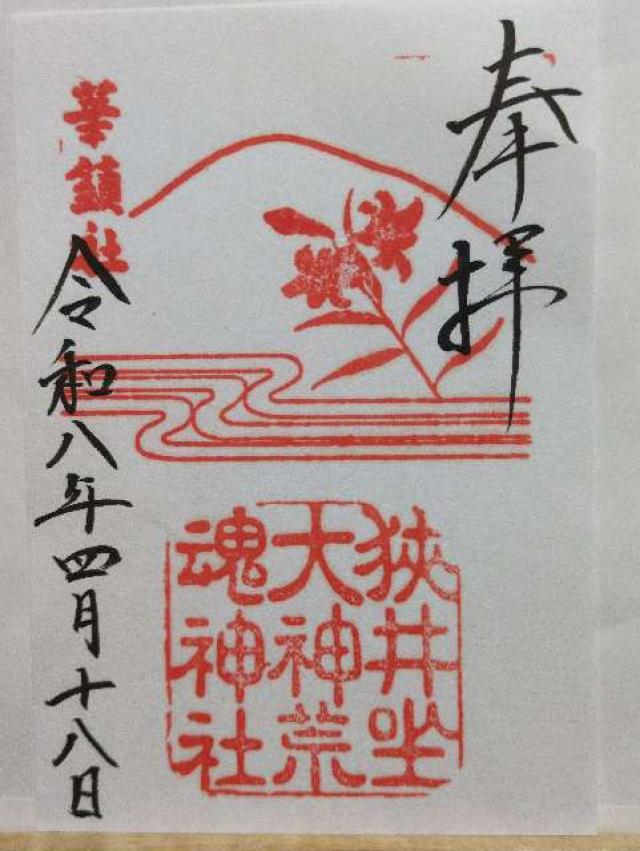 奉拝
狭井坐
大神荒
魂神社
華鎮社
令和八年四月十八日